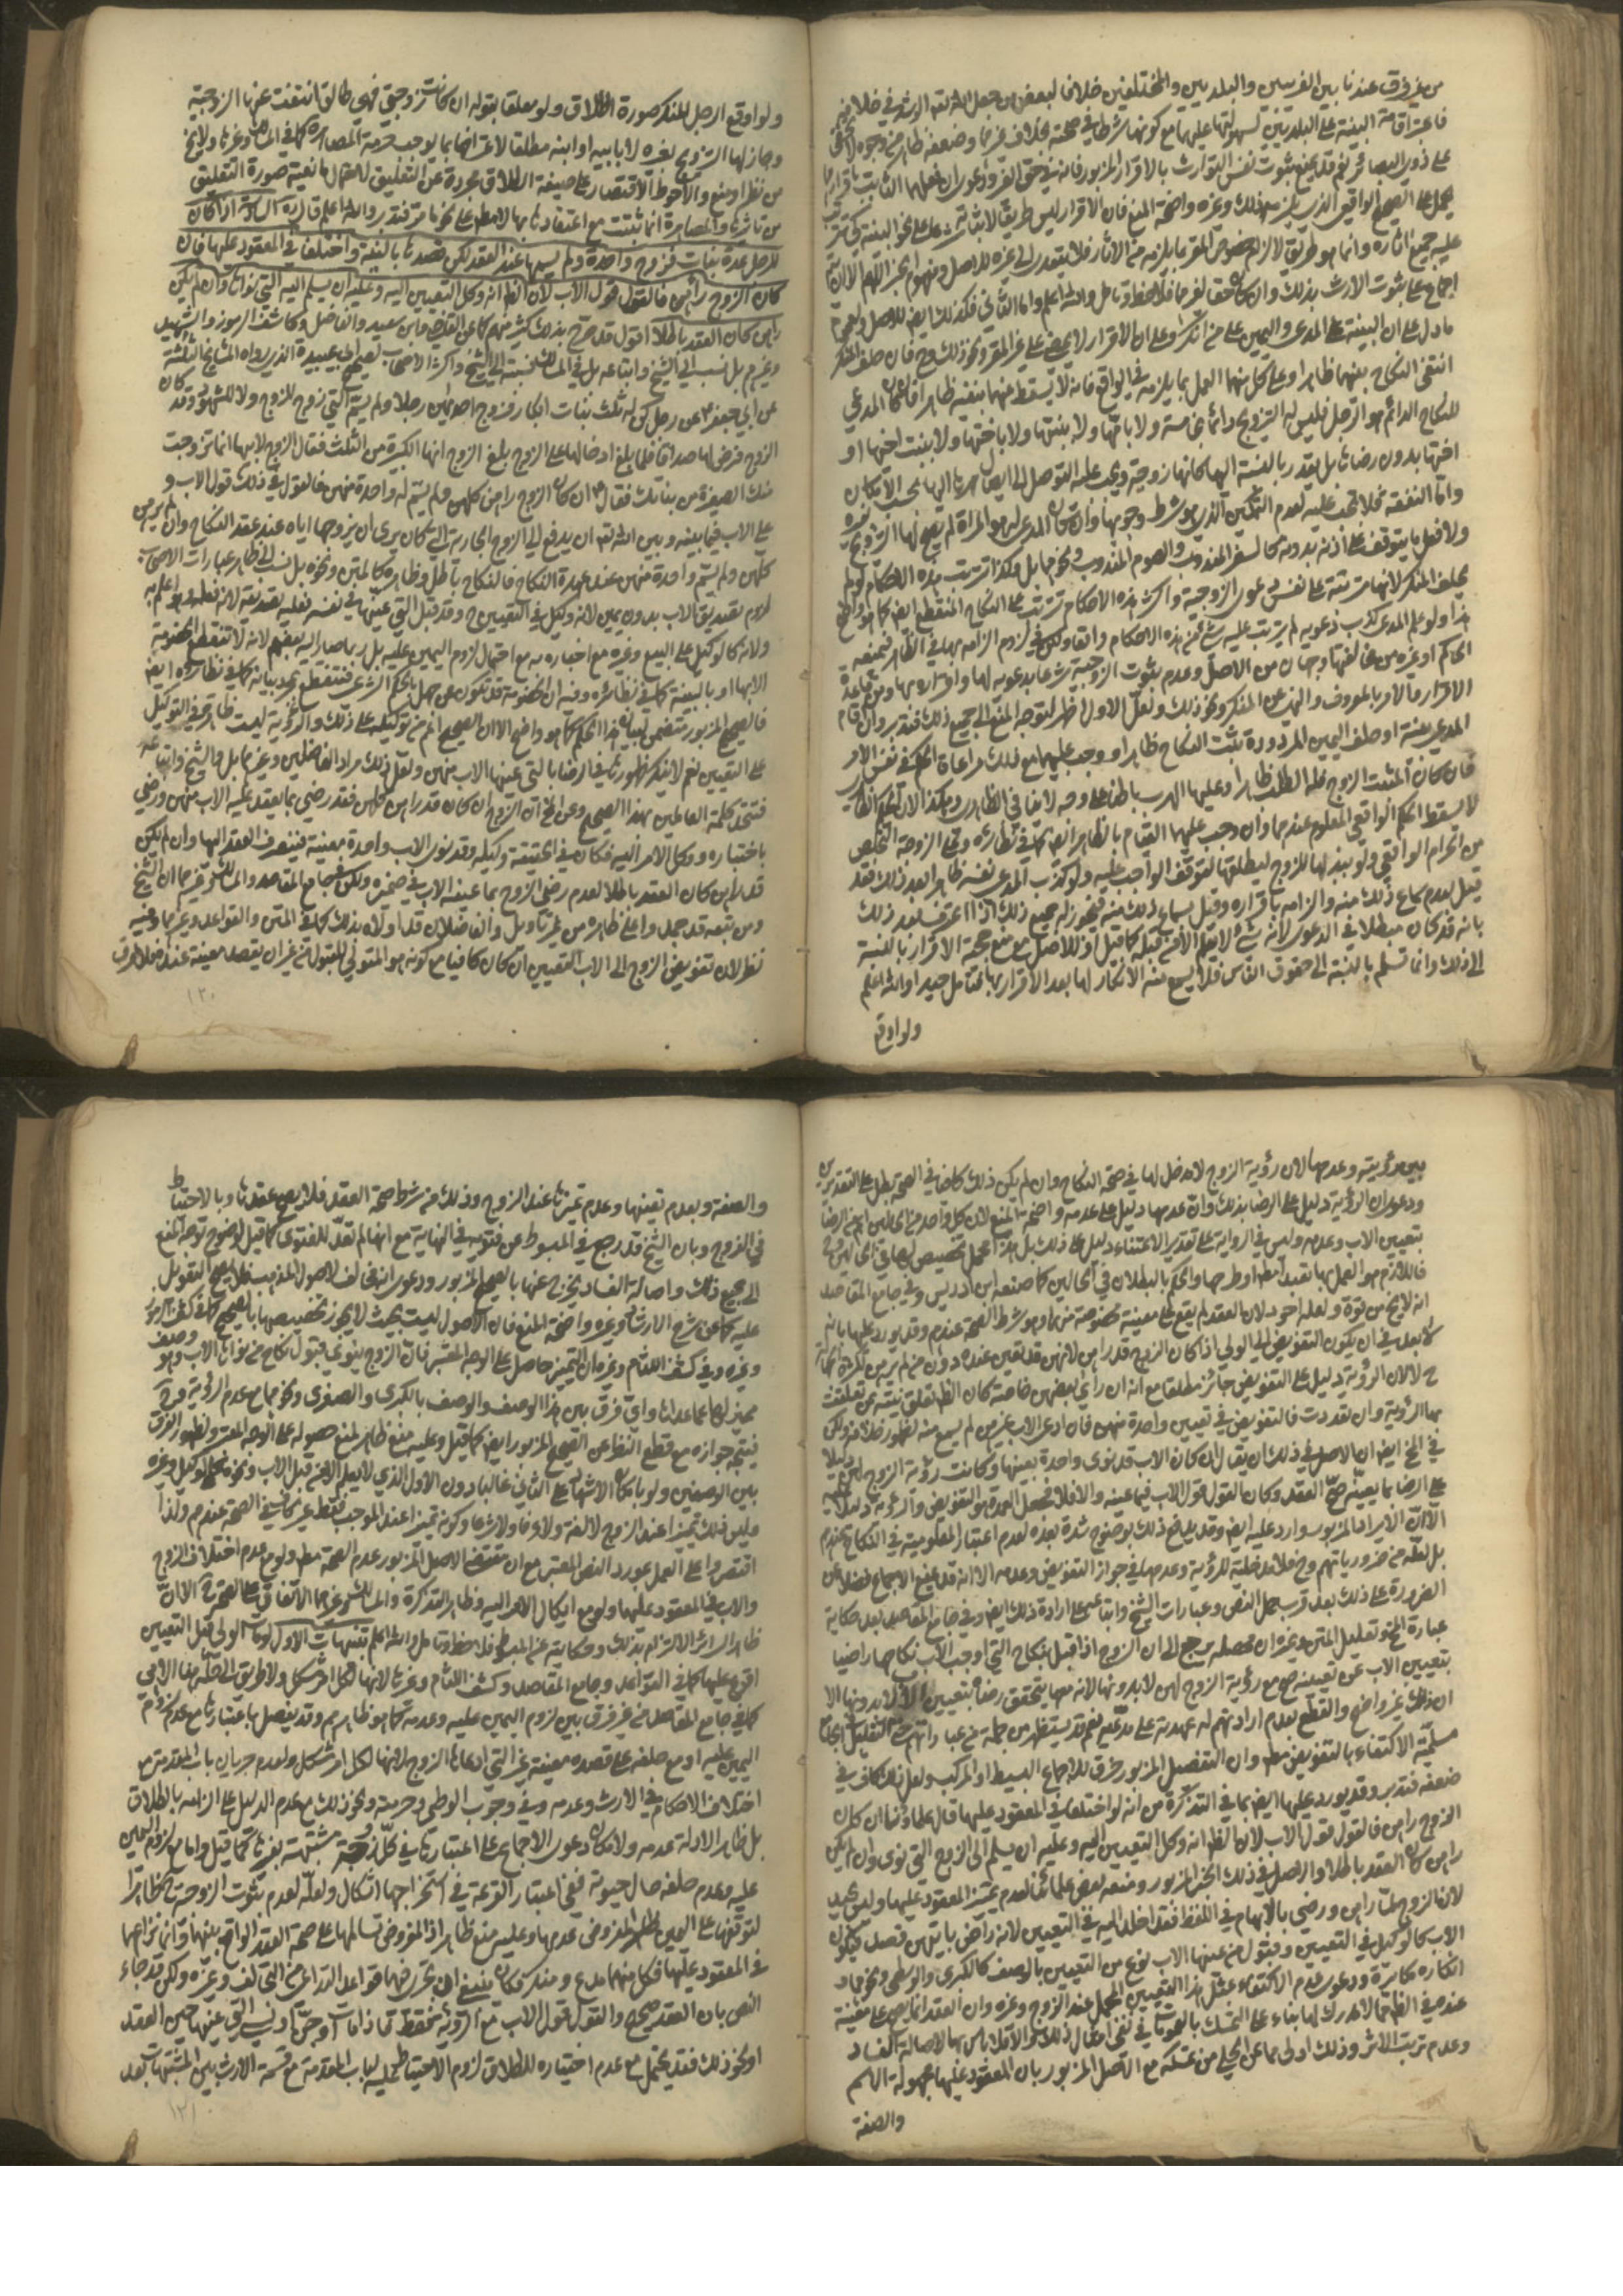 من غير فرق عندنا بين الغريبين والبلديين والمختلفين خلافا لبعض من جعل الله تعالى الرشد في خلافه
فاعتبر اقامة البينة على البلديين لسهولتها عليهما مع كونها شرطا في صحته بخلاف غيرهما وضعفه ظاهر من وجوه لا تخفى
على ذوي البصائر نعم قد يمنع ثبوت نفس التوارث بالاقرار المزبور فانه في حق الغير ودعوى
يحمل على الصحيح الواقعي الذي يلزمه ذلك وغيره واضحة المنع فان الاقرار ليس طريقا لاثبات على نحو البينة كي تترتب
عليه جميع اثاره وانما هو طريق لالزام خصوص المقر بما يلزمه من الاثار فلا يتعدى الى غيره للاصل ومفهوم الخبر اللهم الا ان يتم
اجماع على ثبوت الارث بذلك وان كان حقا لغيرهما فلاحظ وتامل والله اعلم واما الثاني فكذلك ايضا للاصل وعموم
ما دل على ان البينة على المدعي واليمين على من انكر وعلى ان الاقرار لا يمضي على غير المقر ونحو ذلك وح فان حلف المنكر
انتفى النكاح بينهما ظاهرا وعلى كل منهما العمل بما يلزمه في الواقع فانه لا يسقط عنهما بنفيه ظاهرا فان كان المدعي
للنكاح الدائم هو الرجل فليس له التزويج دائما بخامسة ولا بامها ولا بنتها ولا باختها ولا بنت اخيها او
اختها بدون رضاها بل يقدر بالنسبة اليها كانها زوجته ويجب عليه التوصل الى ايصال مهرها اليها بحسب الامكان
واما النفقة فلا تجب عليه لعدم التمكين الذي هو شرط وجوبها وان كان المدعي لها هو المراة لم يصح لها التزويج بغيره
ولا فعل ما يتوقف على اذنه بدونه كالسفر المندوب والصوم المندوب ونحوهما بل وكذا ترتب هذه الاحكام لو لم
يحلف المنكر لانها مترتبة على نفس دعوى الزوجية واكثر هذه الاحكام تترتب على النكاح المنقطع ايضا كما هو واضح
هذا ولو علم المدعي كذب دعويه لم يترتب عليه شيء من هذه الاحكام واقعا ولكن في لزوم الزامه بها في الظاهر فيمنعه
الحاكم او غيره من مخالفتها وجهان من الاصل وعدم ثبوت الزوجية شرعا بدعويه لها واقراره بها ومن قاعدة
الاقرار والامر بالمعروف والنهي عن المنكر ونحو ذلك ولعل الاول اظهر لتوجه المنع الى جميع ذلك فتدبر وان اقام
المدعي بينة او حلف اليمين المردودة ثبت النكاح ظاهرا ووجب عليهما مع ذلك مراعاة الحكم في نفس الامر
فان كان المثبت الزوج فله الطلب ظاهرا وعليها الهرب باطنا على وجه لا ينافي الظاهر وهكذا لان الحكم الظاهر
لا يسقط الحكم الواقعي المعلوم عندهما وان وجب عليهما القيام بالظاهر ايضا كما في نظائره وعلى الزوجة التخلص
من الحرام الواقعي ولو ببذلها للزوج ليطلقها لتوقف الواجب عليه ولو كذب المدعي نفسه ظاهرا بعد ذلك فقد
قيل بعدم سماع ذلك منه والزامه باقراره وقيل بسماع ذلك منه فيجوز له جميع ذلك اذا اعترف بعد ذلك
بانه قد كان مبطلا في الدعوى لانه شيء لا يعلم الا من قبله كما قيل او للاصل مع منع حجة الاقرار بالنسبة
الى ذلك وانما تسلم بالنسبة الى حقوق الناس فلا يسمع منه الانكار لها بعد الاقرار بها فتامل جيدا والله اعلم
ولو اوقع
ولو اوقع الرجل المنكر صورة الطلاق ولو معلقا بقوله ان كانت زوجتي فهي طالق انتفت عنها الزوجية
وجاز لها التزويج بغيره لا بابيه او ابنه مطلقا لاعترافها بما يوجب حرمة المصاهرة كما في المسالك وغيرها ولا يخلو
من نظر او منع والاحوط الاقتصار على صيغة الطلاق مجردة عن التعليق لاحتمال مانعية صورة التعليق
من تاثيرها والمصاهرة انما تثبت مع اعتقادها بها لا مطلقا على نحو ما مر فتدبر والله اعلم قال السادسة اذا كان
للرجل عدة بنات فزوج واحدة ولم يسمها عند العقد لكن قصدها بالنية واختلفا في المعقود عليها فان
كان الزوج رآهن فالقول قول الاب لان الظاهر انه وكل التعيين اليه وعليه ان يسلم اليه التي نواها وان لم يكن
رآهن كان العقد باطلا اقول قد صرح بذلك كثير منهم كما عن القاضي وابن سعيد والفاضل وكاشف الرموز والشهيد
وغيرهم بل نسب الى الشيخ واتباعه بل في المسالك نسبته الى الشيخ واكثر الاصحاب لصحيح ابي عبيدة الذي رواه المشايخ الثلثة
عن ابي جعفر ع عن رجل كن له ثلث بنات ابكار فزوج احديهن رجلا ولم يسم التي زوج للزوج ولا للشهود وقد كان
الزوج فرض لها صداقا فلما بلغ ادخالها على الزوج بلغ الزوج انها الكبيرة من الثلث فقال الزوج لابيها انما تزوجت
منك الصغيرة من بناتك فقال ع ان كان الزوج راهن كلهن ولم يسم له واحدة منهن فالقول في ذلك قول الاب و
على الاب فيما بينه وبين الله تعالى ان يدفع الى الزوج الجارية التي كان نوى ان يزوجها اياه عند عقد النكاح وان كان الزوج لم يرهن
كلهن ولم يسم واحدة منهن عند عقدة النكاح فالنكاح باطل وظاهره كالمتن ونحوه بل نسب الى ظاهر عبارات الاصحاب
لزوم تصديق الاب بدون يمين لانه وكيل في التعيين ح وقد قبل التي عينها في نفسه فعليه تصديقه لانه فعله وهو اعلم به
ولانه كالوكيل على البيع وغيره مع اخباره به مع احتمال لزوم اليمين عليه بل ربما صار اليه بعضهم لانه لا تنقطع الخصومة
الا بها او بالبينة كما في نظائره وفيه ان الخصومة قد تكون عن جهل بالحكم الشرعي فتنقطع بمجرد بيانه كما في نظائره ايضا
فالصحيح المزبور متضمن لبيان هذا الحكم كما هو واضح الا ان الصحيح اعم من توكيله على ذلك والرؤية ليست ظاهرة في التوكيل
على التعيين نعم لا ينكر ظهورها في الرضا بالتي عينها الاب منهن ولعل ذلك مراد الفاضلين وغيرهما بل والشيخ واتباعه
فتتحد كلمة العاملين بهذا الصحيح وعن الخ ان الزوج ان كان قد راهن كلهن فقد رضي بما يعقد عليه الاب منهن ورضي
باختياره ووكل الامر اليه فكان في الحقيقة وكيله وقد نوى الاب واحدة معينة فينصرف العقد اليها وان لم يكن
قد راهن كان العقد باطلا لعدم رضى الزوج بما عينه الاب في ضميره ولكن في جامع المقاصد والمسالك وغيرهما ان الشيخ
ومن تبعه قد حمله على ظاهره من غير تاويل والفاضلان قد اولاه بذلك كما في المتن والقواعد وغيرهما وفيه
نظر لان تفويض الزوج الى الاب التعيين ان كان كافيا مع كونه هو المتولي للقبول من غير ان يقصد معينة عنده فلا فرق
١٢٠
بين رؤيته وعدمها لان رؤية الزوج لا مدخل لها في صحة النكاح وان لم يكن ذلك كافيا في الصحة بطل على التقديرين
ودعوى ان الرؤية دليل على الرضا بذلك وان عدمها دليل على عدمه واضحة المنع لان كل واحد من الحالين اعم من الرضا
بتعيين الاب وعدمه وليس في الرواية على تقدير الاعتناء دليل على ذلك بل هذا تخصيص لها في الحالين وح
فاللازم هو العمل بها تعبدا مطلقا او طرحها والحكم بالبطلان في الحالين كما صنعه ابن ادريس وفي جامع المقاصد
انه لا يخ من قوة ولعله اجود لان العقد لم يقع على معينة مخصوصة منهما وهو شرط الصحة عندهم وقد يورد عليها بانه
لا بعد في ان يكون التفويض الى الولي اذا كان الزوج قد راهن لانهن قد تعين عنده دون من لم يرهن
ح لا لان الرؤية دليل على التفويض جائز مطلقا مع انه ان راى بعضهن خاصة كان الظاهر تعلق نيته بمن تعلقت
بها الرؤية وان تعددت فالتفويض في تعيين واحدة منهن فان ادعى الاب غيرهن لم يسمع منه لظهور خلافه ولكن
في الخ ايضا ان الاصل في ذلك ان يقال ان كان الاب قد نوى واحدة بعينها وكانت رؤية الزوج لهن دليلا
على الرضا بما يعينه صح العقد وكان القول قول الاب فيما عينه والا فلا فجعل العمدة هو التفويض والرؤية دليله
الا ان الايراد المزبور وارد عليه ايضا وقد يدفع ذلك بوضوح شدة بعده لعدم اعتبار المعلومية في النكاح عندهم
بل لعله من ضرورياتهم وح فلا مدخلية للرؤية وعدمها في جواز التفويض وعدمه الا انه قد يمنع الاجماع فضلا عن
الضرورة على ذلك بعد قرب حمل النص وعبارات الشيخ واتباعه على ارادة ذلك ايضا وفي جامع المقاصد بعد حكاية
عبارة الخ وتعليل المتن وغيره ان محصله يرجع الى ان الزوج اذا قبل نكاح التي اوجب الاب نكاحها راضيا
بتعيين الاب عن تعيينه صح مع رؤية الزوج لهن لا بدونها لانه معها يتحقق رضاه بتعيين الاب لا بدونها الا
ان ذلك غير واضح والقطع بعدم ارادتهم له عهدته على مدعيه نعم قد يستظهر من جملة من عباراتهم
مسلمية الاكتفاء بالتفويض مطلقا وان التفصيل المزبور خرق للاجماع البسيط او المركب ولعل ذلك كاف في
ضعفه فتدبر وقد يورد عليها ايضا بما في التذكرة من انه لو اختلفا في المعقود عليها قال علماؤنا ان كان
الزوج راهن فالقول قول الاب لان الظاهر انه وكل التعيين اليه وعليه ان يسلم الى الزوج التي نوى وان لم يكن
راهن كان العقد باطلا والاصل في ذلك الخبر المزبور ومنعه بعض علمائنا لعدم تمييز المعقود عليها وليس بجيد
لان الزوج لما راهن ورضي بالابهام في اللفظ فقد اخلد اليه في التعيين لانه راض بايتهن قصد فيكون
الاب كالوكيل في التعيين وقبول من عينها الاب نوع من التعيين بالوصف كالكبرى والوسطى ونحوهما و
انكاره مكابرة ودعوى عدم الاكتفاء بمثل هذا التعيين المجمل عند الزوج وغيره وان العقد انما يصح على معينة
عندهما في الظاهر لا مدرك لها بناء على التمسك بالعمومات في نفي احتمال ذلك والا فلا باس بها لاصالة الفساد
وعدم ترتب الاثر وذلك اولى مما عن الحلي من تمسكه مع الاصل المزبور بان المعقود عليها مجهولة الاسم
والصفة
والصفة وبعدم تعينها وعدم تميزها عند الزوج وذلك من شرط صحة العقد فلا يصح عقدها وبالاحتياط
في الفروج وبان الشيخ قد رجع في المبسوط عن فتويه في النهاية مع انها لم تعد للفتوى كما قيل لوضوح توجه المنع
الى جميع ذلك واصالة الفساد يخرج عنها بالصحيح المزبور ودعوى انه مخالف لاصول المذهب فلا يصح التعويل
عليه كما عن شرح الارشاد وغيره واضحة المنع فان الاصول ليست بحيث لا يجوز تخصيصها بالصحيح كما في كشف الرموز
وغيره وفي كشف اللثام وغيره ان التمييز حاصل على الوجه المعتبر فان الزوج ينوي قبول نكاح من نواها الاب وهو وصف
مميز لها عما عداها واي فرق بين هذا الوصف والوصف بالكبرى والصغرى ونحوهما مع عدم الرؤية فح
فيتجه جوازه مع قطع النظر عن الصحيح المزبور ايضا كما قيل وعليه منع ظاهر لمنع حصوله على الوجه المعتبر ولظهور الفرق
بين الوصفين ولو بامكان الاشهاد على الثاني غالبا دون الاول الذي لا يعلم الا من قبل الاب ونحوه كالوكيل وغيره
وليس ذلك تميزا عند الزوج لا لغة ولا عرفا ولا شرعا وكونه تميزا عند الموجب فقط غير كاف في الصحة عندهم ولذا
اقتصروا على العمل بمورد النص المعتبر مع ان مقتضى الاصل المزبور عدم الصحة مطلقا ولو مع عدم اختلاف الزوج
والاب في المعقود عليها ولو مع ايكال الامر اليه وظاهر التذكرة والمسالك وغيرهما الاتفاق على الصحة ح الا ان
ظاهر السرائر الالتزام بذلك وحكايته عن المبسوط فلاحظ وتامل والله اعلم تنبيهات الاول لو مات الولي قبل التعيين
اقرع عليها كما في القواعد وجامع المقاصد وكشف اللثام وغيرها لانها لكل امر مشكل ولا طريق الى حله هنا الا هي
كما في جامع المقاصد من غير فرق بين لزوم اليمين عليه وعدمه كما هو ظاهرهم وقد يفصل باعتبارها مع عدم لزوم
اليمين عليه او مع حلفه على قصده معينة غير التي ادعاها الزوج لانها لكل امر مشكل ولعدم جريان باب المقدمة مع
اختلاف الاحكام في الارث وعدمه وفي وجوب الوطي وحرمته ونحو ذلك مع عدم الدليل على الزامه بالطلاق
بل ظاهر الادلة عدمه ولامكان دعوى الاجماع على اعتبارها في كل زوجة مشتبهة بغيرها كما قيل واما مع لزوم اليمين
عليه وعدم حلفه حال حيوته ففي اعتبار القرعة في استخراجها اشكال ولعله لعدم ثبوت الزوجية ح ظاهرا
لتوقفها على اليمين المفروض عدمها وعليه منع ظاهر اذ المفروض تسالمهما على صحة العقد الواقع بينهما وانه نزاعهما
في المعقود عليها فكل منهما مدع ومنكر فكان ينبغي ان تجري فيهما قواعد التداعي من التحالف وغيره ولكن قد جاء
النص بان العقد صحيح والقول قول الاب مع الرؤية فقط فاذا مات او جن او نسي التي عينها حين العقد
او نحو ذلك فقد يحتمل مع عدم اختياره للطلاق لزوم الاحتياط عليه لباب المقدمة مع قسمة الارث بين المشتبهات بعد
١٢١